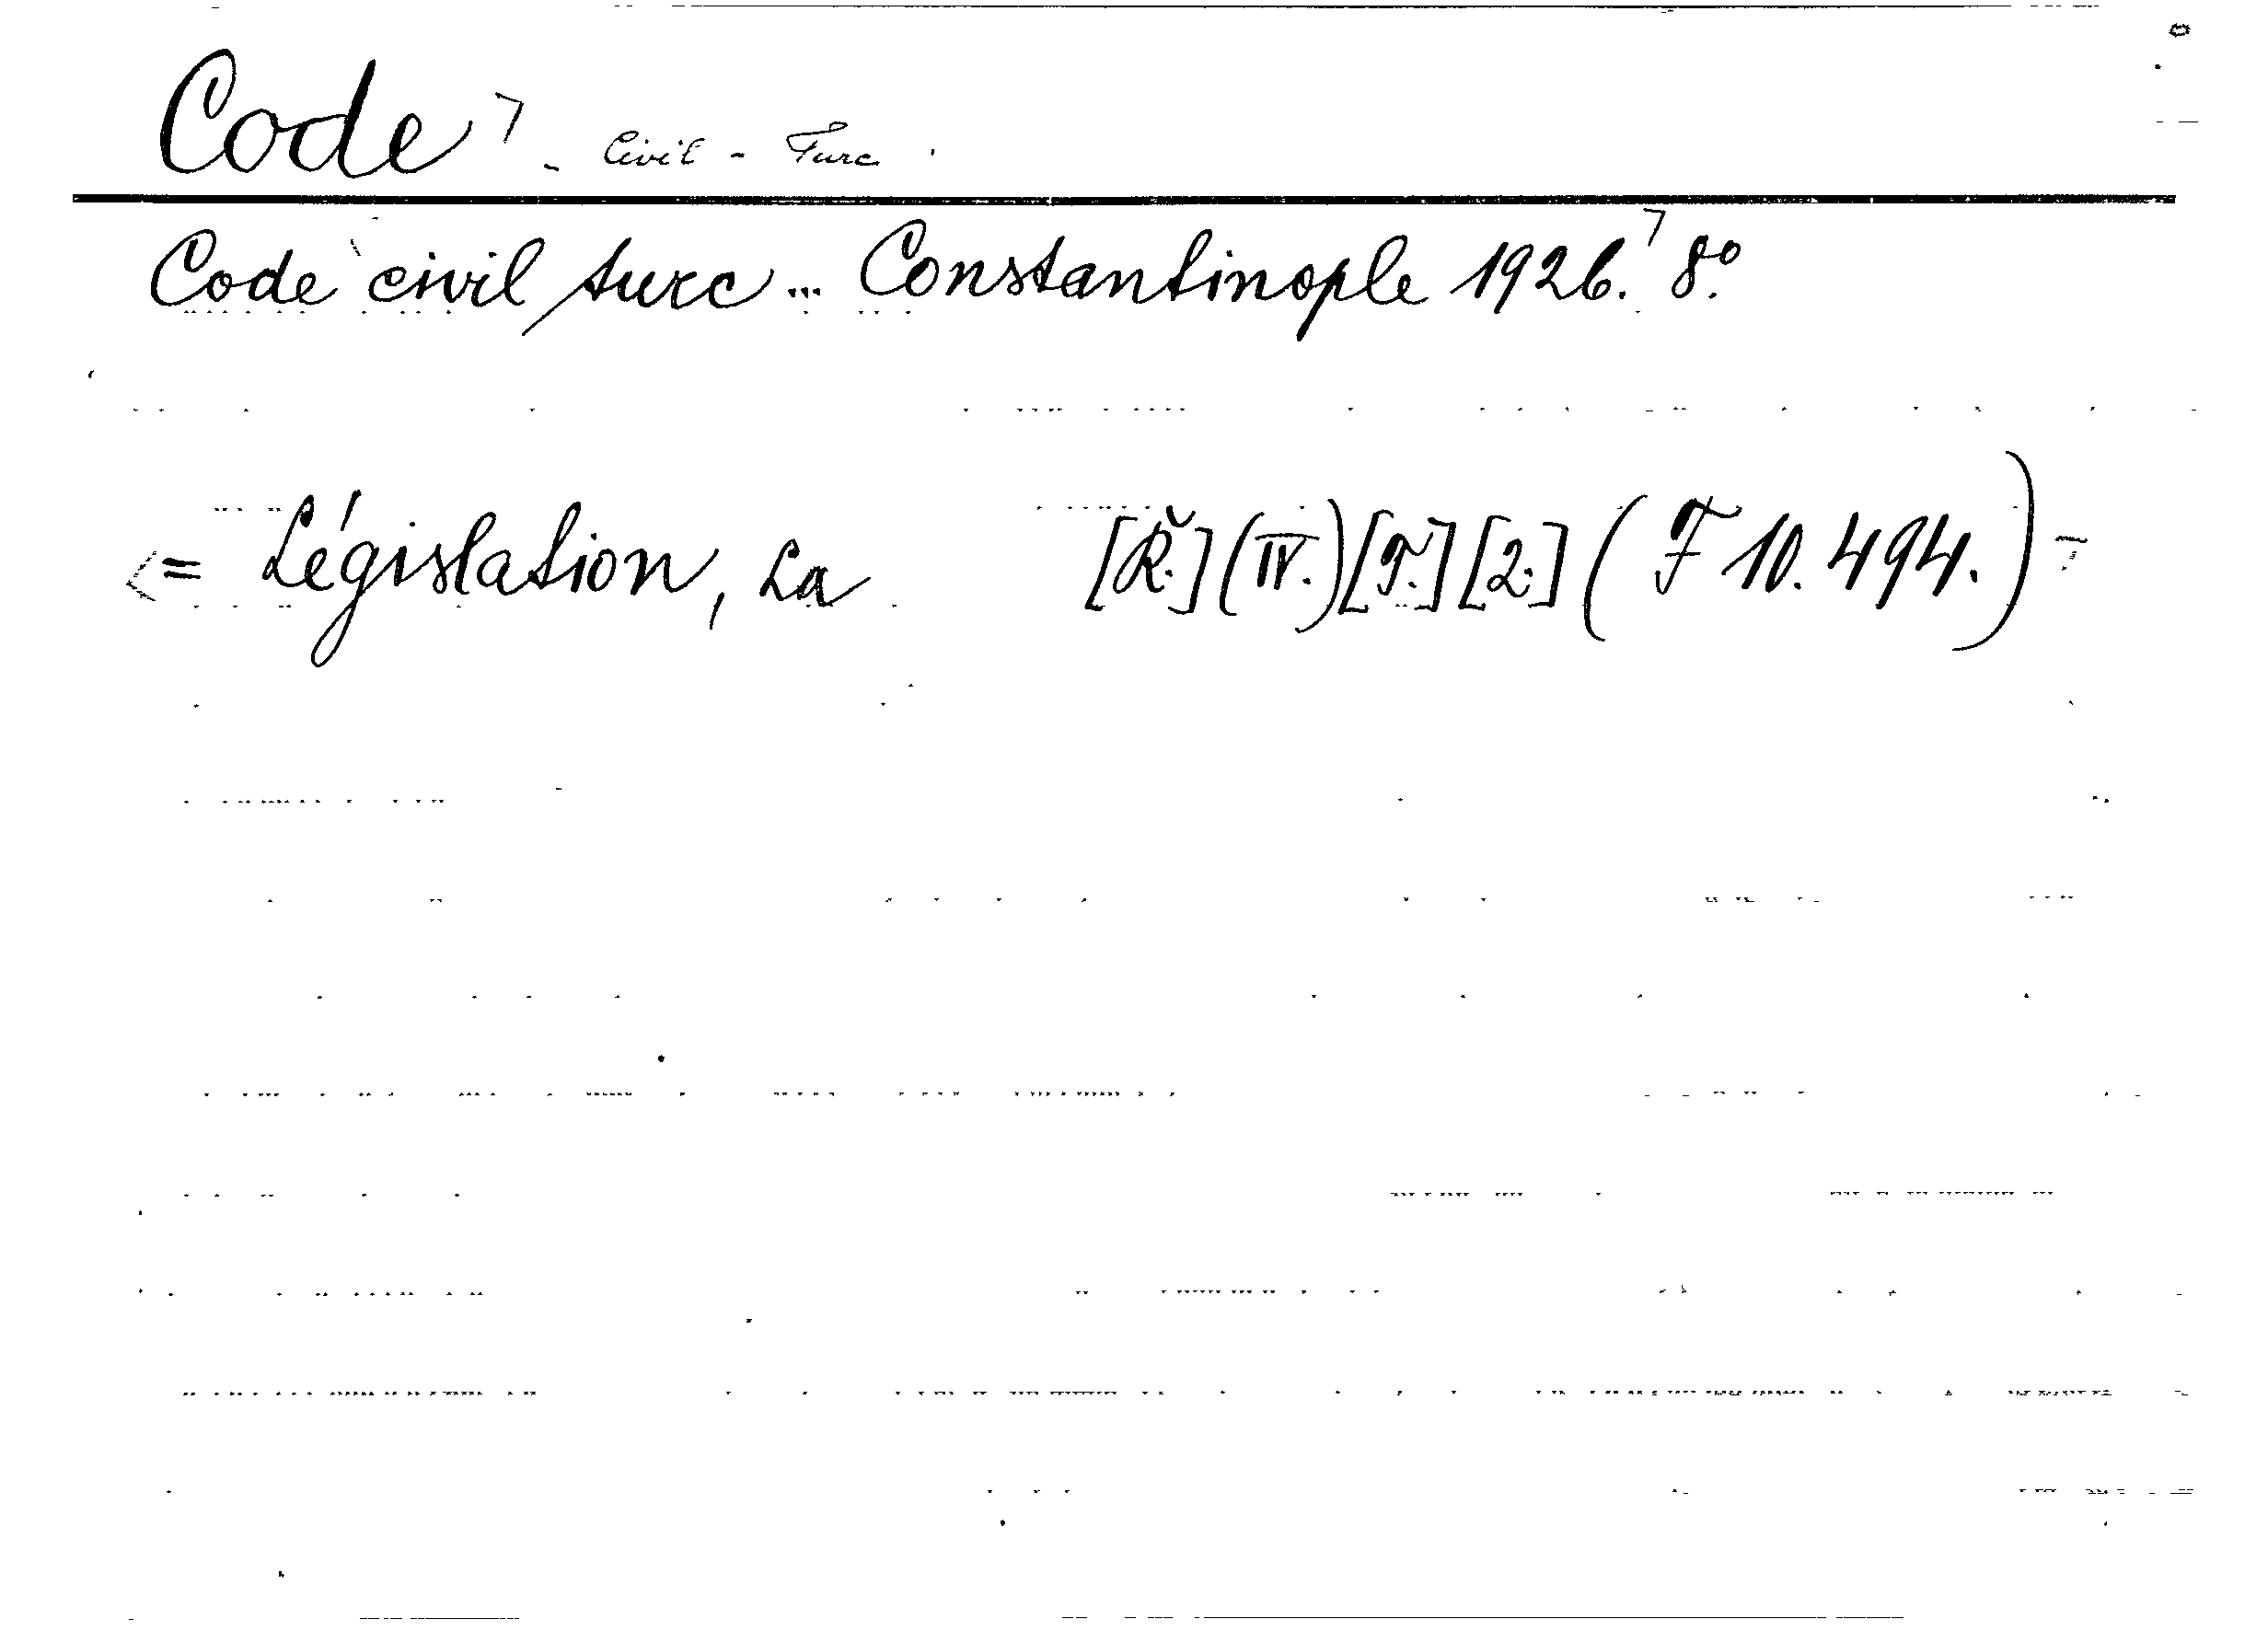 Code - Civil - Turc.
Code civil turc... Constantinople 1926. 8º.
= Législation, La [Ř.] (IV.) [T.] [2.] (F 10.494.)